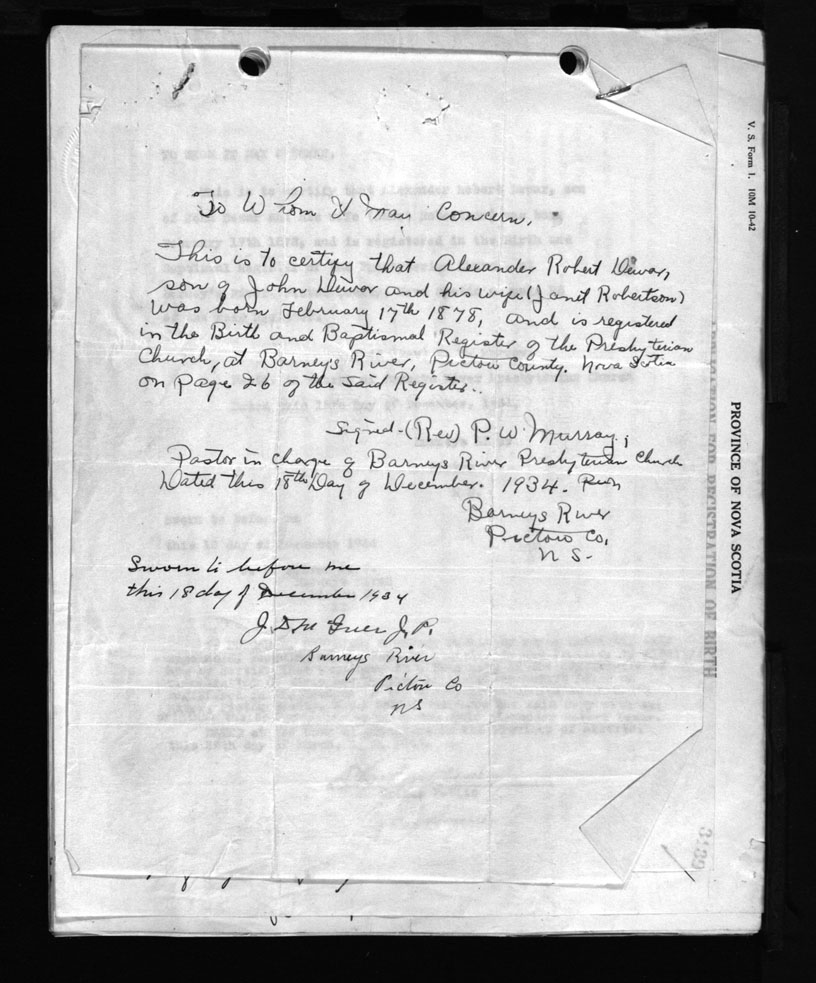 To Whom It May Concern,
This is to certify that Alexander Robert Dewar,
son of John Dewar and his wife (Janet Robertson)
was born February 17th 1878, and is registered
in the Birth and Baptismal Register of the Presbyterian
Church, at Barneys River, Pictou County. Nova Scotia
on Page 26 of the said Register.
Signed - (Rev) P. W. Murray,
Pastor in charge of Barneys River Presbyterian Church
Dated this 18th Day of December. 1934.
Barneys River
Pictou Co,
N S.
Sworn to before me
this 18 day of December 1934
J. D. J.P.
Barneys River
Pictou Co
NS
V. S. Form 1. 10M 10-42
PROVINCE OF NOVA SCOTIA
REGISTRATION OF BIRTH